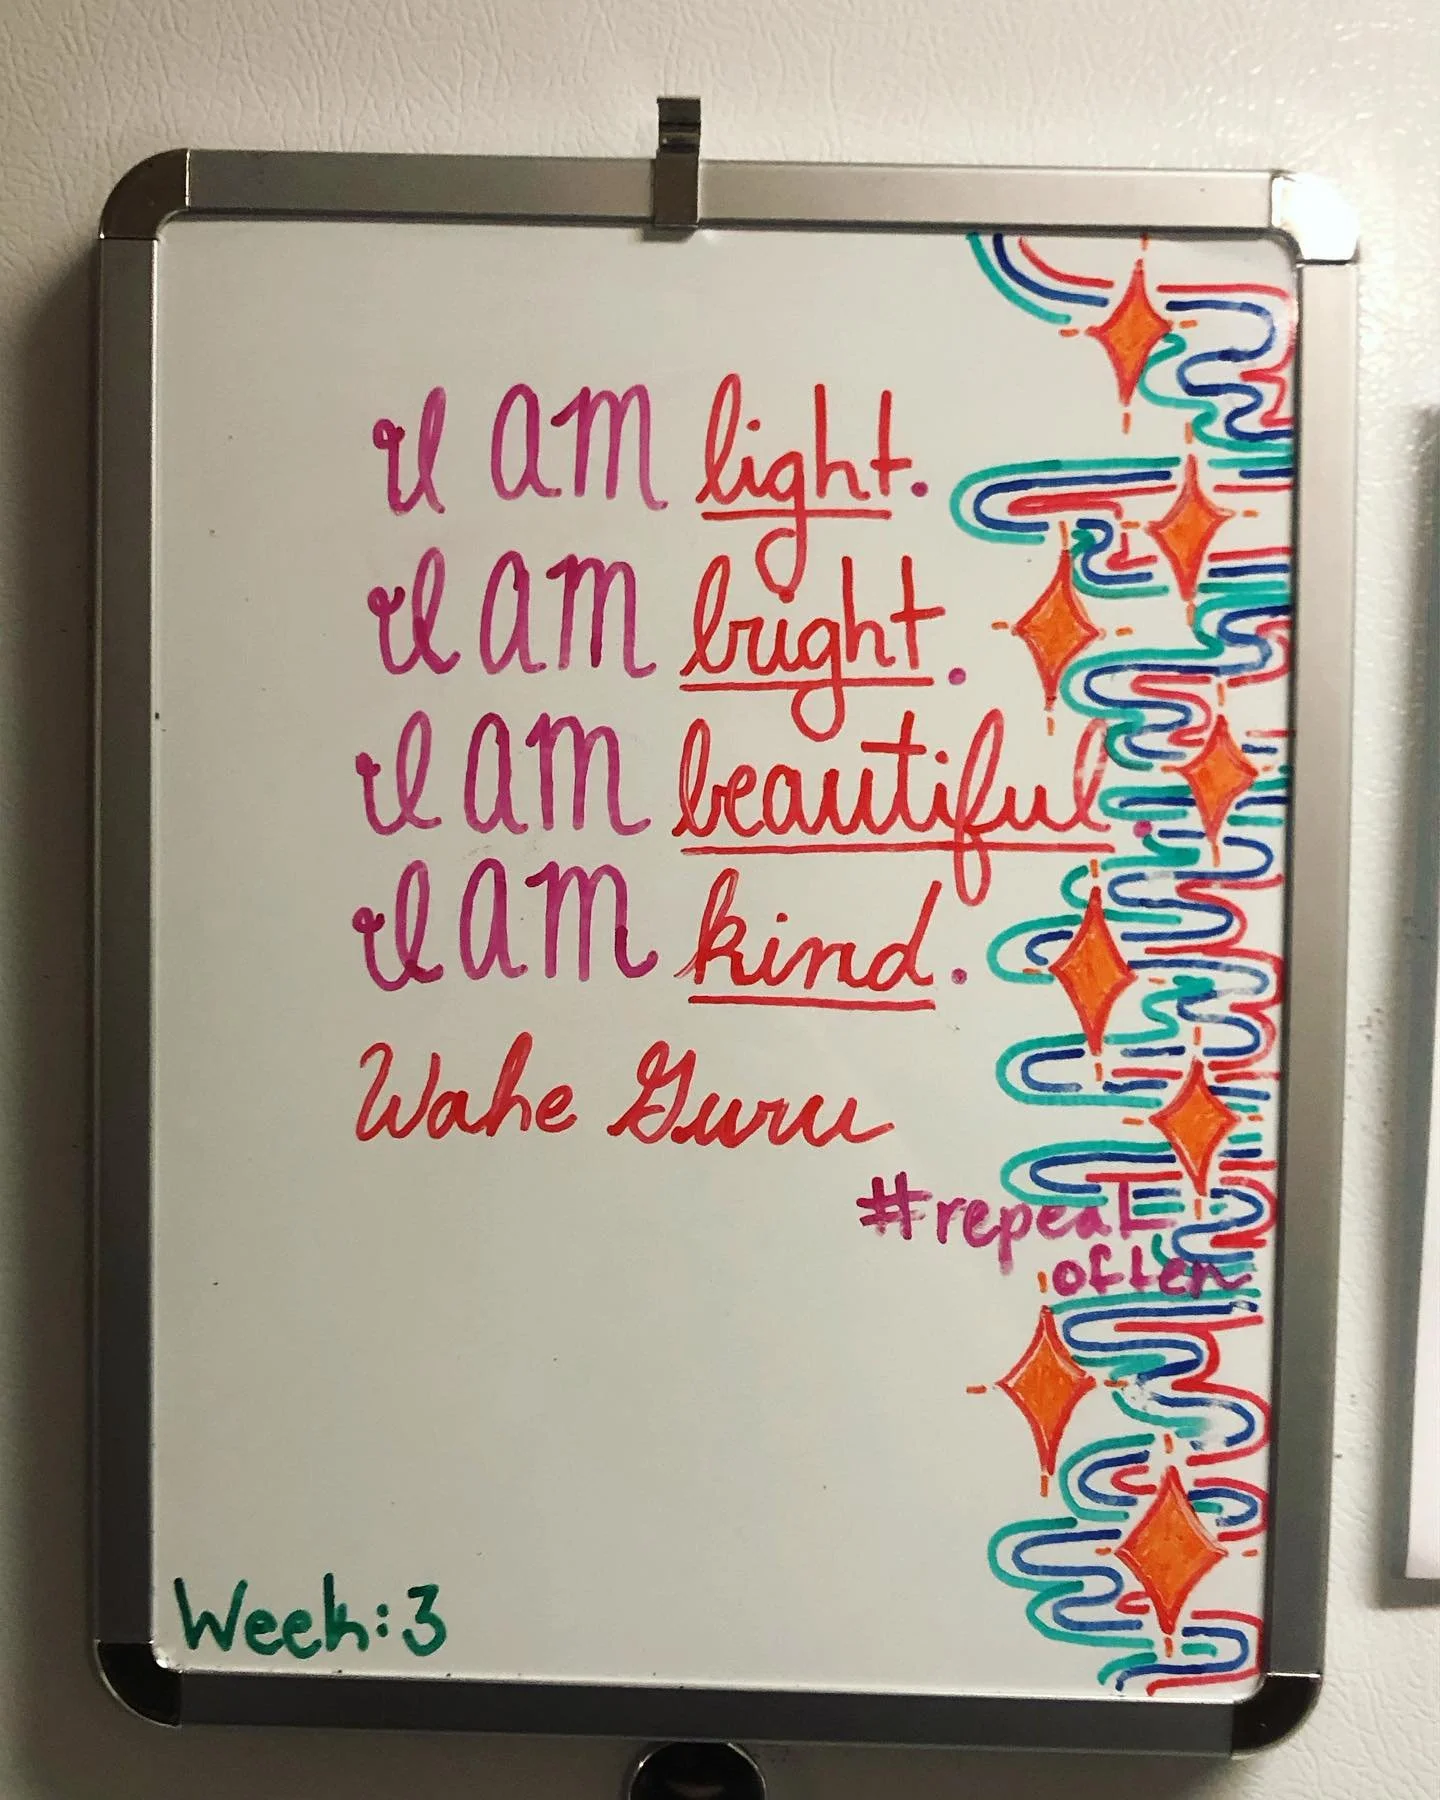 I am light.
I am bright.
I am beautiful.
I am kind.
Wahe Guru
#repeat
often
Week:3